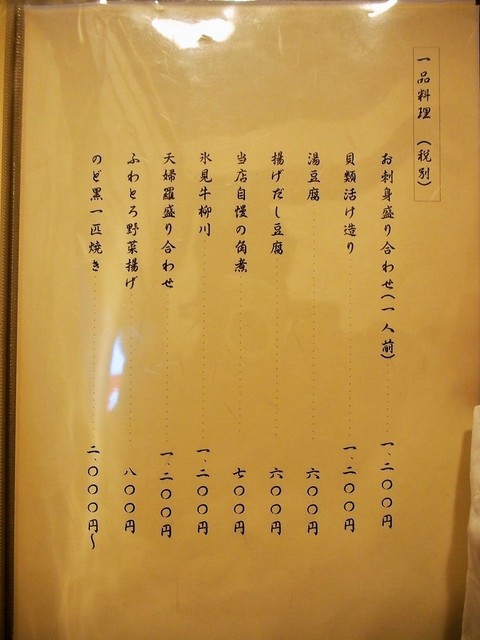 一品料理 (税別)
お刺身盛り合わせ(一人前)………一、二〇〇円
貝類活け造り………一、二〇〇円
湯豆腐………六〇〇円
揚げだし豆腐………六〇〇円
当店自慢の角煮………七〇〇円
氷見牛柳川………一、二〇〇円
天婦羅盛り合わせ………一、二〇〇円
ふわとろ野菜揚げ………八〇〇円
のど黒一匹焼き………二、〇〇〇円～